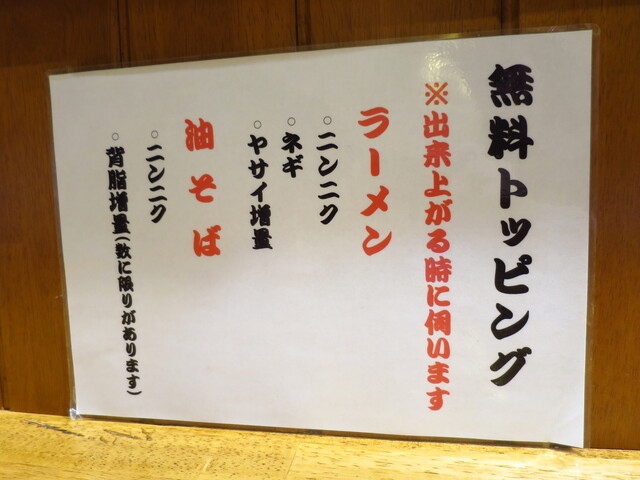 無料トッピング
※出来上がる時に伺います
ラーメン
○ニンニク
○ネギ
○ヤサイ増量
油そば
○ニンニク
○背脂増量(数に限りがあります)